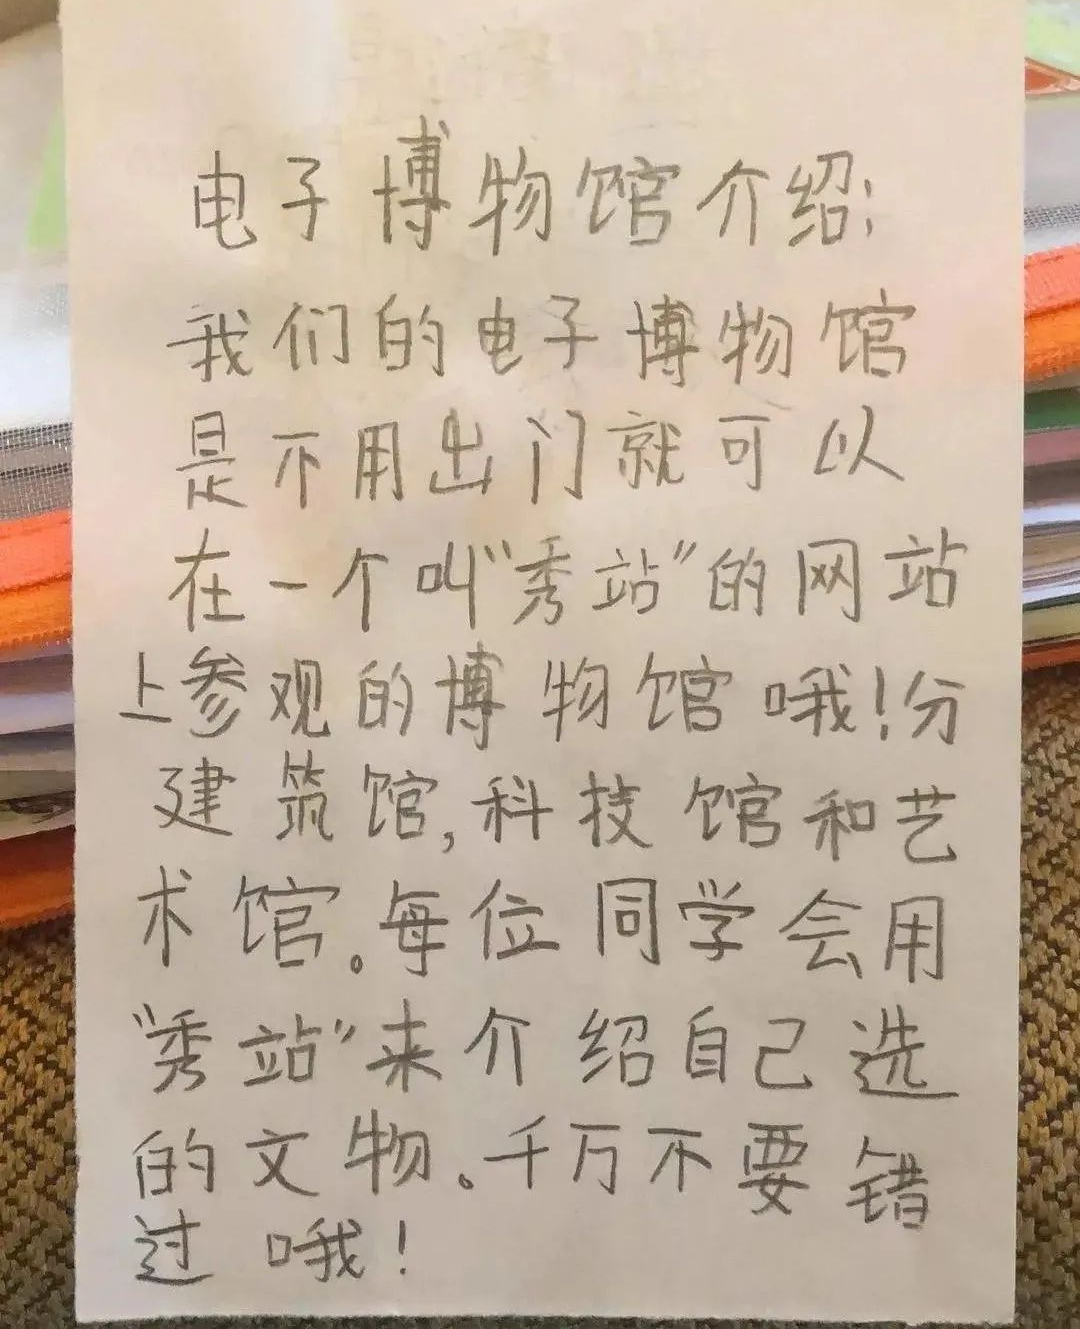 电子博物馆介绍:
我们的电子博物馆
是不用出门就可以
在一个叫“秀站”的网站
上参观的博物馆哦!分
建筑馆,科技馆和艺
术馆。每位同学会用
“秀站”来介绍自己选
的文物。千万不要错
过哦!